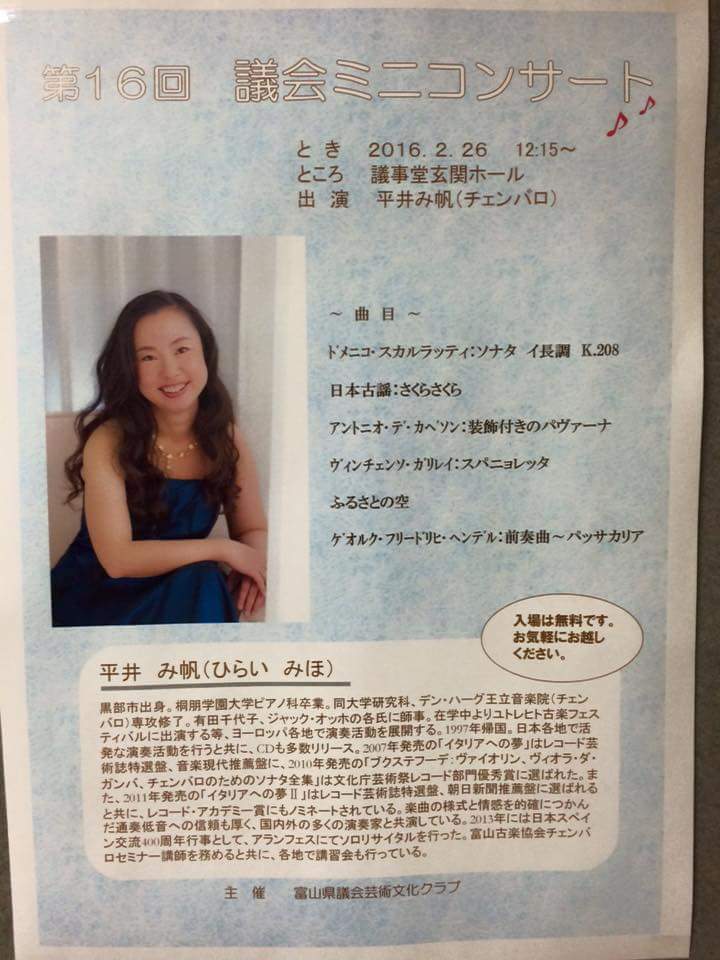 第16回 議会ミニコンサート
とき 2016.2.26 12:15～
ところ 議事堂玄関ホール
出演 平井み帆(チェンバロ)
～ 曲目 ～
ドメニコ・スカルラッティ:ソナタ イ長調 K.208
日本古謡:さくらさくら
アントニオ・デ・カベソン:装飾付きのパヴァーナ
ヴィンチェンソ・ガリレイ:スパニョレッタ
ふるさとの空
ゲオルク・フリードリヒ・ヘンデル:前奏曲～パッサカリア
入場は無料です。
お気軽にお越し
ください。
平井 み帆(ひらい みほ)
黒部市出身。桐朋学園大学ピアノ科卒業。同大学研究科、デン・ハーグ王立音楽院(チェン
バロ)専攻修了。有田千代子、ジャック・オッホの各氏に師事。在学中よりユトレヒト古楽フェス
ティバルに出演する等、ヨーロッパ各地で演奏活動を展開する。1997年帰国。日本各地で活
発な演奏活動を行うと共に、CDも多数リリース。2007年発売の「イタリアへの夢」はレコード芸
術誌特選盤、音楽現代推薦盤に、2010年発売の「ブクステフーデ:ヴァイオリン、ヴィオラ・ダ・
ガンバ、チェンバロのためのソナタ全集」は文化庁芸術祭レコード部門優秀賞に選ばれた。ま
た、2011年発売の「イタリアへの夢Ⅱ」はレコード芸術誌特選盤、朝日新聞推薦盤に選ばれる
と共に、レコード・アカデミー賞にもノミネートされている。楽曲の様式と情感を的確につかん
だ通奏低音への信頼も厚く、国内外の多くの演奏家と共演している。2013年には日本スペイ
ン交流400周年行事として、アランフェスにてソロリサイタルを行った。富山古楽協会チェンバ
ロセミナー講師を務めると共に、各地で講習会も行っている。
主催 富山県議会芸術文化クラブ